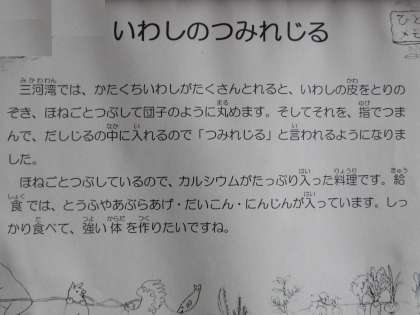 ひと
メモ
いわしのつみれじる
三河湾では、かたくちいわしがたくさんとれると、いわしの皮をとりの
ぞき、ほねごとつぶして団子のように丸めます。そしてそれを、指でつま
んで、だしじるの中に入れるので「つみれじる」と言われるようになりま
した。
ほねごとつぶしているので、カルシウムがたっぷり入った料理です。給
食では、とうふやあぶらあげ・だいこん・にんじんが入っています。しっ
かり食べて、強い体を作りたいですね。